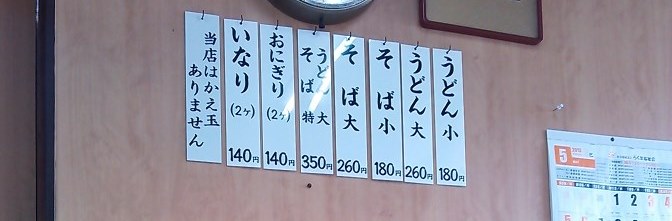 うどん小
180円
うどん大
260円
そば小
180円
そば大
260円
うどん大
そば 特
350円
おにぎり
(2ヶ)
140円
いなり
(2ヶ)
140円
当店はかえ玉
ありません
5
1
2
3